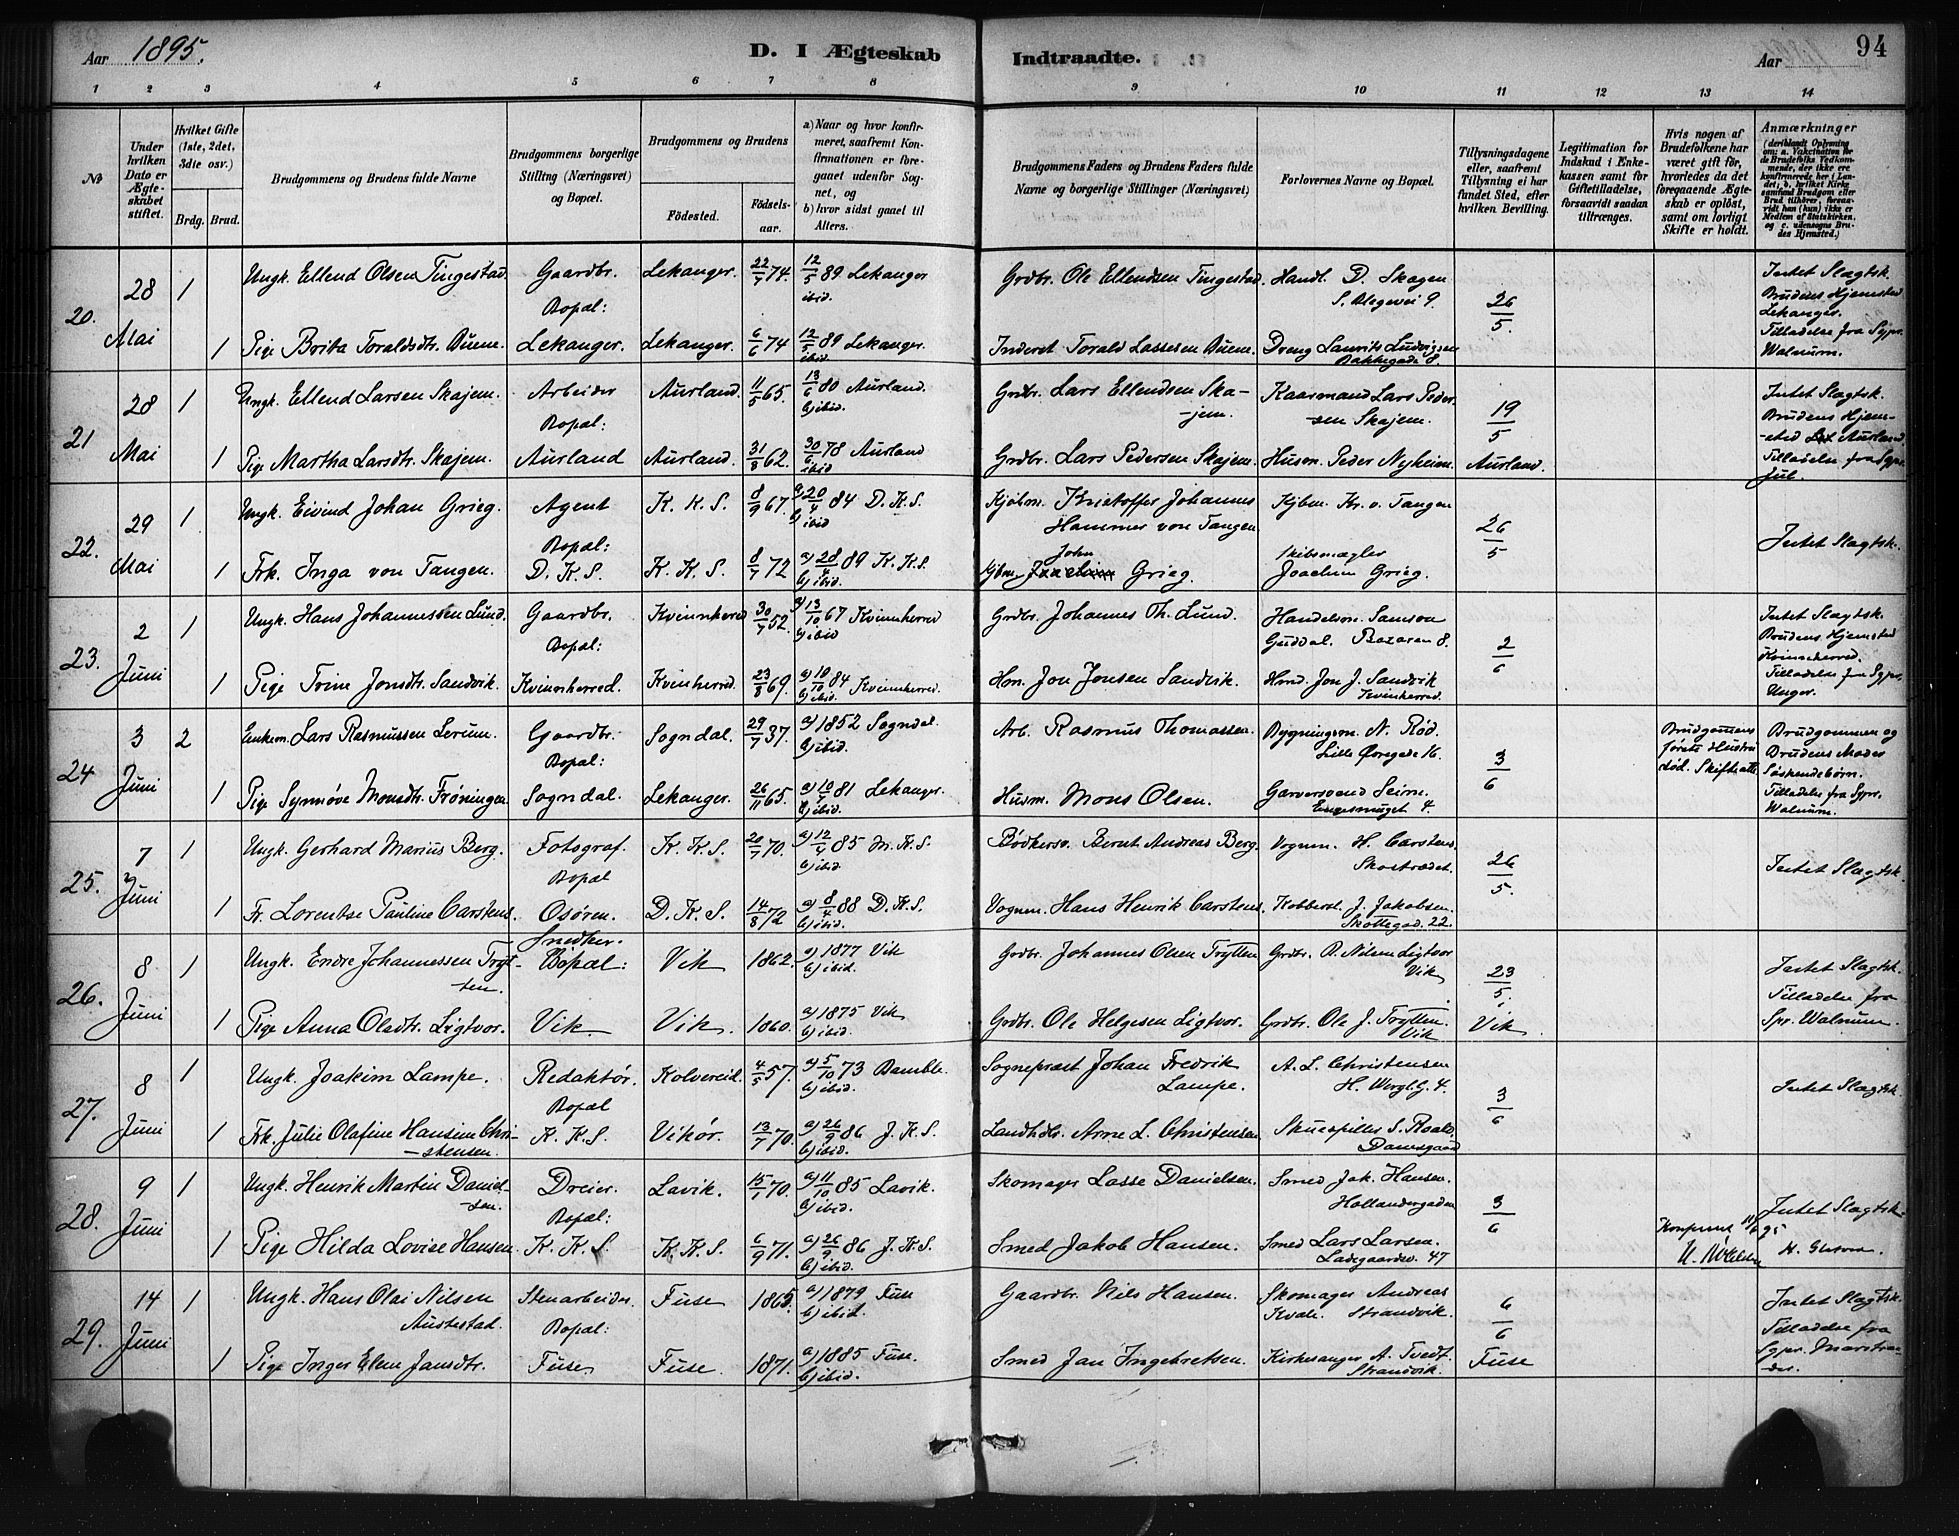 Aar 1895.
D. I Ægteskab Indtraadte.
Aar
94
1 2 3 4 5 6 7 8 9 10 11 12 13 14
No
Under hvilken Dato er Ægteskabet stiftet.
Hvilket Gifte (1ste, 2det, 3die osv.)
Brdg. Brud.
Brudgommens og Brudens fulde Navne
Brudgommens borgerlige Stilling (Næringsvei) og Bopæl.
Brudgommens og Brudens
Födested.
Födselsaar.
a) Naar og hvor konfirmeret, saafremt Konfirmationen er foregaaet udenfor Sognet, og
b) hvor sidst gaaet til Alters.
Brudgommens Faders og Brudens Faders fulde Navne og borgerlige Stillinger (Næringsvei)
Forlovernes Navne og Bopæl.
Tillysningsdagene eller, saafremt Tillysning ei har fundet Sted, efter hvilken Bevilling.
Legitimation for Indskud i Enkekassen samt for Giftetilladelse, forsaavidt saadan tiltrænges.
Hvis nogen af Brudefolkene har været gift för, hvorledes da det foregaaende Ægteskab er oplöst, samt om lovligt Skifte er holdt.
Anmærkninger
(deriblandt Oplysning om: a. Vaksination for de Brudefolks Vedkommende, der ikke ere konfirmerede her i Landet; b. hvilket Kirkesamfund Brudgom eller Brud tilhörer, forsaavidt han (hun) ikke er Medlem af Statskirken, og c. udensogns Brudes Hjemsted.)
20. 28 Mai 1 Ungk. Ellend Olsen Tingestad. Gaardbr. Lekanger. 22/7 74. 12/5 89 Lekanger ibid. Grdbr. Ole Ellendsen Tingestad. Handl. D. Skagen S. Blegevei 9. 26/5. Intet Slagtsk. Brudens Hjemsted Lekanger. Tilladelse fra Sgpr. Walnum.
Bopæl:
1 Pige Brita Toraldsdtr. Buene. Lekanger. Lekanger. 6/6 74 12/5 89 Lekanger. ibid Inderst Torald Lassesen Buene. Dreng Laurits Ludvigsen Bakkegade 8.
21 28 Mai 1 Ungk. Ellend Larsen Skajem. Arbeider Aurland. 11/5 65. 13/6 80 Aurland. b) ibid. Grdbr. Lars Ellendsen Skajem. Kaarmand Lars Pedersen Skajem. 19/5 Aurland. Intet Slagtsk. Brudens Hjemsted Aurland Tilladelse fra Sgpr. Jul.
Bopæl:
1 Pige Martha Larsdtr. Skajem. Aurland Aurland. 31/8 62. 30/6 78 Aurland ibid Grdbr. Lars Pedersen Skajem. Husm. Peder Nyheim.
22. 29 Mai 1 Ungk. Eivind Johan Grieg. Agent K. K. S. 8/9 67. a) 20/4 84 D. K. S. b) ibid Kjøbm. Kristoffer Johannes Hammer von Tangen Kjbm. Kr. v. Tangen 26/5 Intet Slagtsk.
Bopæl:
1 Frk. Inga von Tangen. D. K. S. K. K. S. 8/7 72 a) 28/4 89 K. K. S. b) ibid. Kjbm. John Grieg. Skibsmægler Joachim Grieg.
23. 2 Juni 1 Ungk. Hans Johannessen Lund. Gaardbr. Kvinnherred 30/7 52. a) 13/10 67 Kvinnherred b) ibid Grdbr. Johannes Th. Lund. Handelsm. Samson Guddal. Bazaren 8. 2/6 Intet Slagtsk. Brudens Hjemsted Kvinneherred. Tilladelse fra Sgpr. Unger.
Bopæl:
1 Pige Trine Jonsdtr. Sandvik. Kvinnherred. Kvinherred. 23/8 69. a) 10/10 84 Kvinnherred. b) ibid. Hm. Jon Jonsen Sandvik. Hmd. Jon J. Sandvik Kvinherred.
24 3 Juni 2 Enkem. Lars Rasmussen Lerum. Gaardbr. Sogndal. 29/7 37. a) 1852 Sogndal. b) ibid. Arb. Rasmus Thomassen. Bygningsm. N. Rød. Lille Øvregade 16. 3/6 Brudgommens første Hustru død. Skifteatt. Brudgommen og Brudens Moder Søskendebørn. Tilladelse fra Sgpr. Walnum.
Bopæl:
1 Pige Synnøve Monsdtr. Frøningen Sogndal. Lekanger. 26/11 65. 81 Lekanger. b) ibid. Husm. Mons Olsen. Garversvend Seim. Engesmuget 4.
25. 7 Juni 1 Ungk. Gerhard Marius Berg. Fotograf. K. K. S. 20/7 70. a) 12/4 85 M. K. S. b) ibid. Bødkersv. Bernt Andreas Berg. Vognm. H. Carstens. Skostrædet. 26/5. Intet Slagtsk.
Bopæl
1 Fr. Lorentse Pauline Carstens. Osøren. D. K. S. 14/8 72 a) 8/4 88 D. K. S. b) ibid. Vognm. Hans Henrik Carstens. Kobberst. J. Jakobsen. Skottegad. 22.
26. 8 Juni 1 Ungk. Endre Johannessen Trytten. Snedker. Bopæl: Vik 1862. a) 1877 Vik b) ibid. Grdbr. Johannes Olsen Trytten Grdbr. R. Nilsen Ligtvor Vik 23/5. Vik Intet Slagtsk. Tilladelse fra Spr. Walnum.
1 Pige Anna Olsdtr. Ligtvor. Vik Vik. 1860. a) 1875 Vik b) ibid. Grdbr. Ole Helgesen Ligtvor. Grdbr. Ole J. Trytten. Vik
27. 8 Juni 1 Ungk. Joakim Lampe. Redaktør. Kolvereid. 4/5 57. a) 5/10 73 Bamble. b) ibid. Sognepræst Johan Fredrik Lampe. A. L. Christensen H. Wergl. G. 4. 3/6 Intet Slagtsk.
Bopæl
1 Frk. Julie Olafine Hansine Christensen. K. K. S. Vikør. 13/7 70. a) 26/9 86 J. K. S. b) ibid. Landh. Arne L. Christensen Skuespiller S. Roald. Damsgaard
28. 9 Juni 1 Ungk. Henrik Martin Danielsen. Dreier. Lavik. 15/1 70. a) 11/10 85 Lavik. b) ibid. Skomager Lasse Danielsen. Smed Jak. Hansen. Hollændergaden 3/6 Intet Slagtsk.
Bopæl:
1 Pige Hilda Lovise Hansen K. K. S. K. K. S. 6/9 71. a) 26/9 86 J. K. S. b) ibid. Smed Jakob Hansen. Smed Lars Larsen. Ladegaardsv. 47
29. 14 Juni 1 Ungk. Hans Olai Nilsen Austestad. Stenarbeider. Fuse 1865. a) 1879 Fuse b) ibid. Gaardbr. Nils Hansen. Skomager Andreas Kvale. Strandvik. 6/6 Fuse Intet Slagtsk. Tilladelse fra Sgpr. Marstrander.
Bopæl:
1 Pige Inger Elene Jansdtr. Fuse Fuse. 1871. a) 1885 Fuse. b) ibid. Smed Jan Ingebretsen. Kirkesanger A. Tvedt. Strandvik.